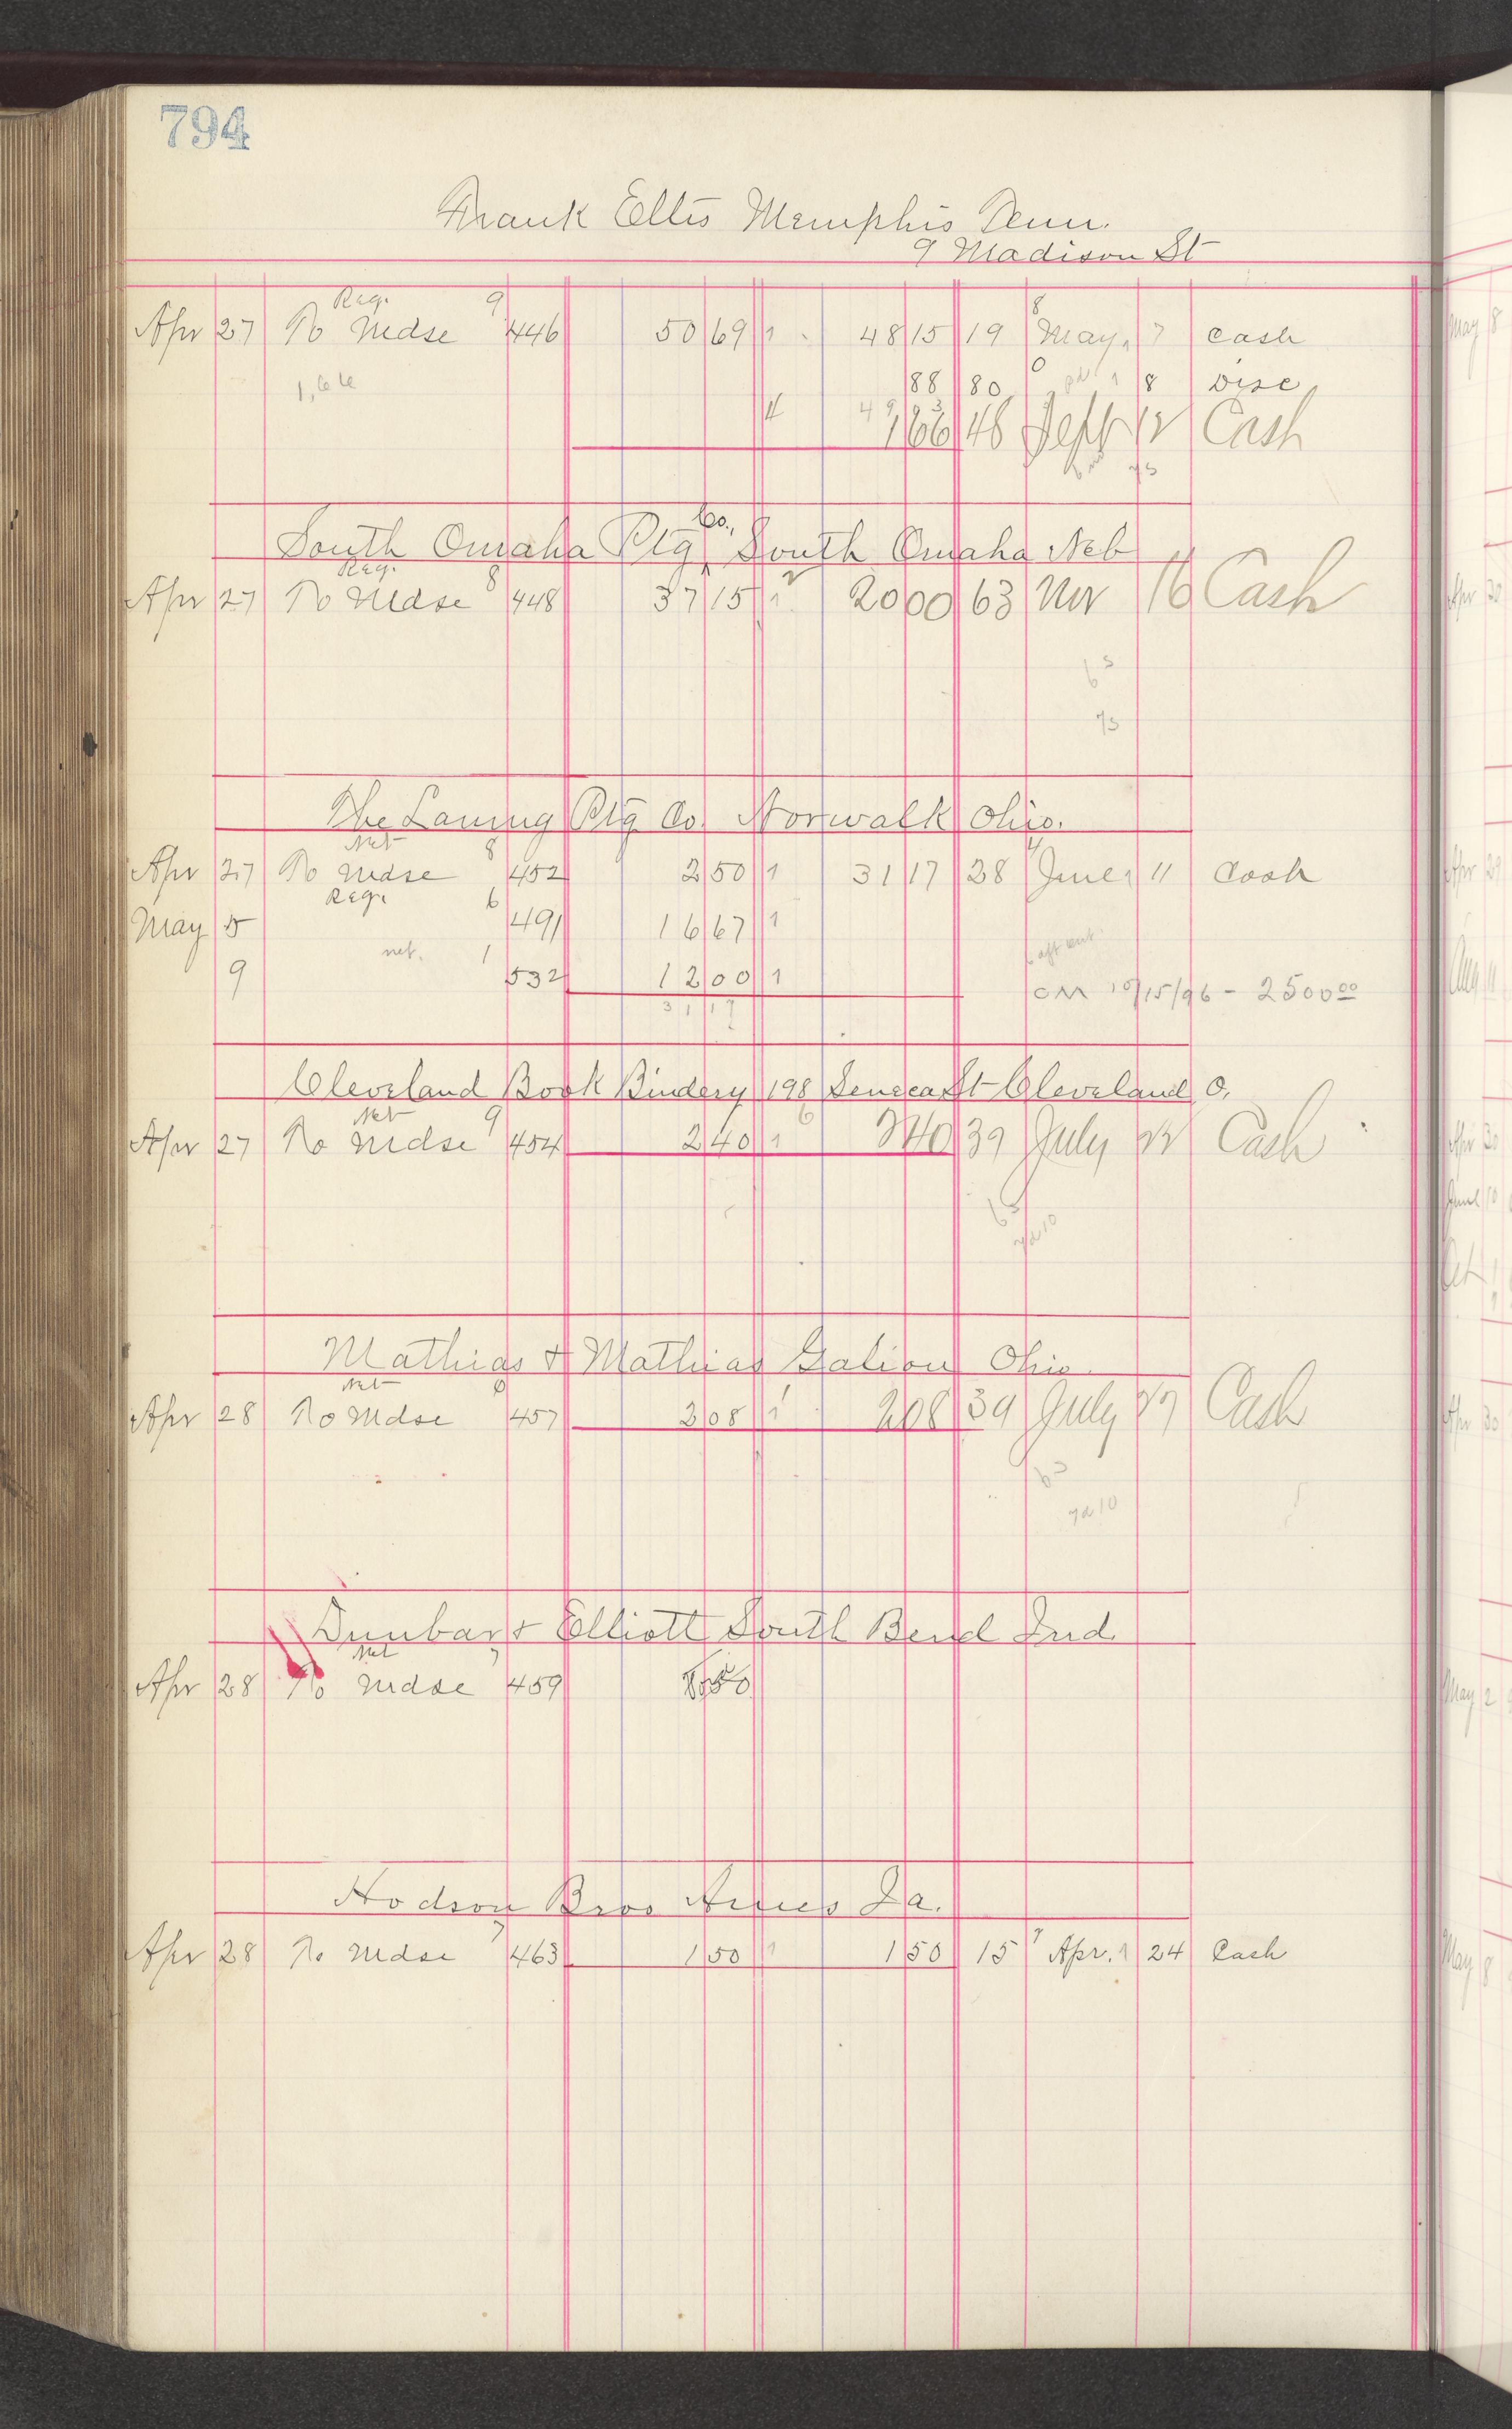 794
Frank Ellis Memphis Tenn.
9 Madison St
Reg. 9
Apr 27 To Mdse 446 50 69 1 48 15 19 May 7 Cash
1,66 88 80 8 Disc
1 66 48 Sept 12 Cash
South Omaha Ptg Co., South Omaha Neb
Reg. 8
Apr 27 To Mdse 448 37 15 1 20 00 63 Nov 16 Cash
The Laning Ptg Co. Norwalk Ohio.
Net 8
Apr 27 To Mdse 452 2 50 1 31 17 28 June 11 Cash
Reg. 6
May 5 491 16 67 1
net. 1
9 532 12 00 1
31 17
CM 10/15/96 - 2500 00
Cleveland Book Bindery 198 Seneca St Cleveland O.
Net 9
Apr 27 To Mdse 454 2 40 1 2 40 39 July Cash
Mathias & Mathias Galion Ohio
Net
Apr 28 To Mdse 457 2 08 1 2 08 39 July Cash
Dunbar & Elliott South Bend Ind.
Net 7
Apr 28 To Mdse 459
Hodson Bros Ames Ia.
7
Apr 28 To Mdse 463 1 50 1 1 50 15 Apr. 24 Cash